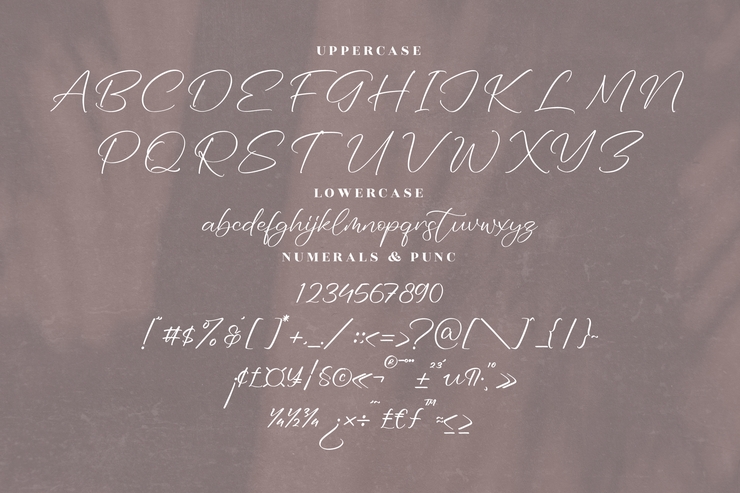 UPPERCASE
ABCDEFGHIJKLMN
PQRSTUVWXYZ
LOWERCASE
abcdefghijklmnopqrstuvwxyz
NUMERALS & PUNC
1234567890
!"#$%&'[]*+,_./:;<=>?@[\]_{|}~
¡¢£¤¥|§©«¬®¯°±²³´µ¶·¸¹º»
¼½¾¿×÷ˆ˜£€ƒ™≈≤≥